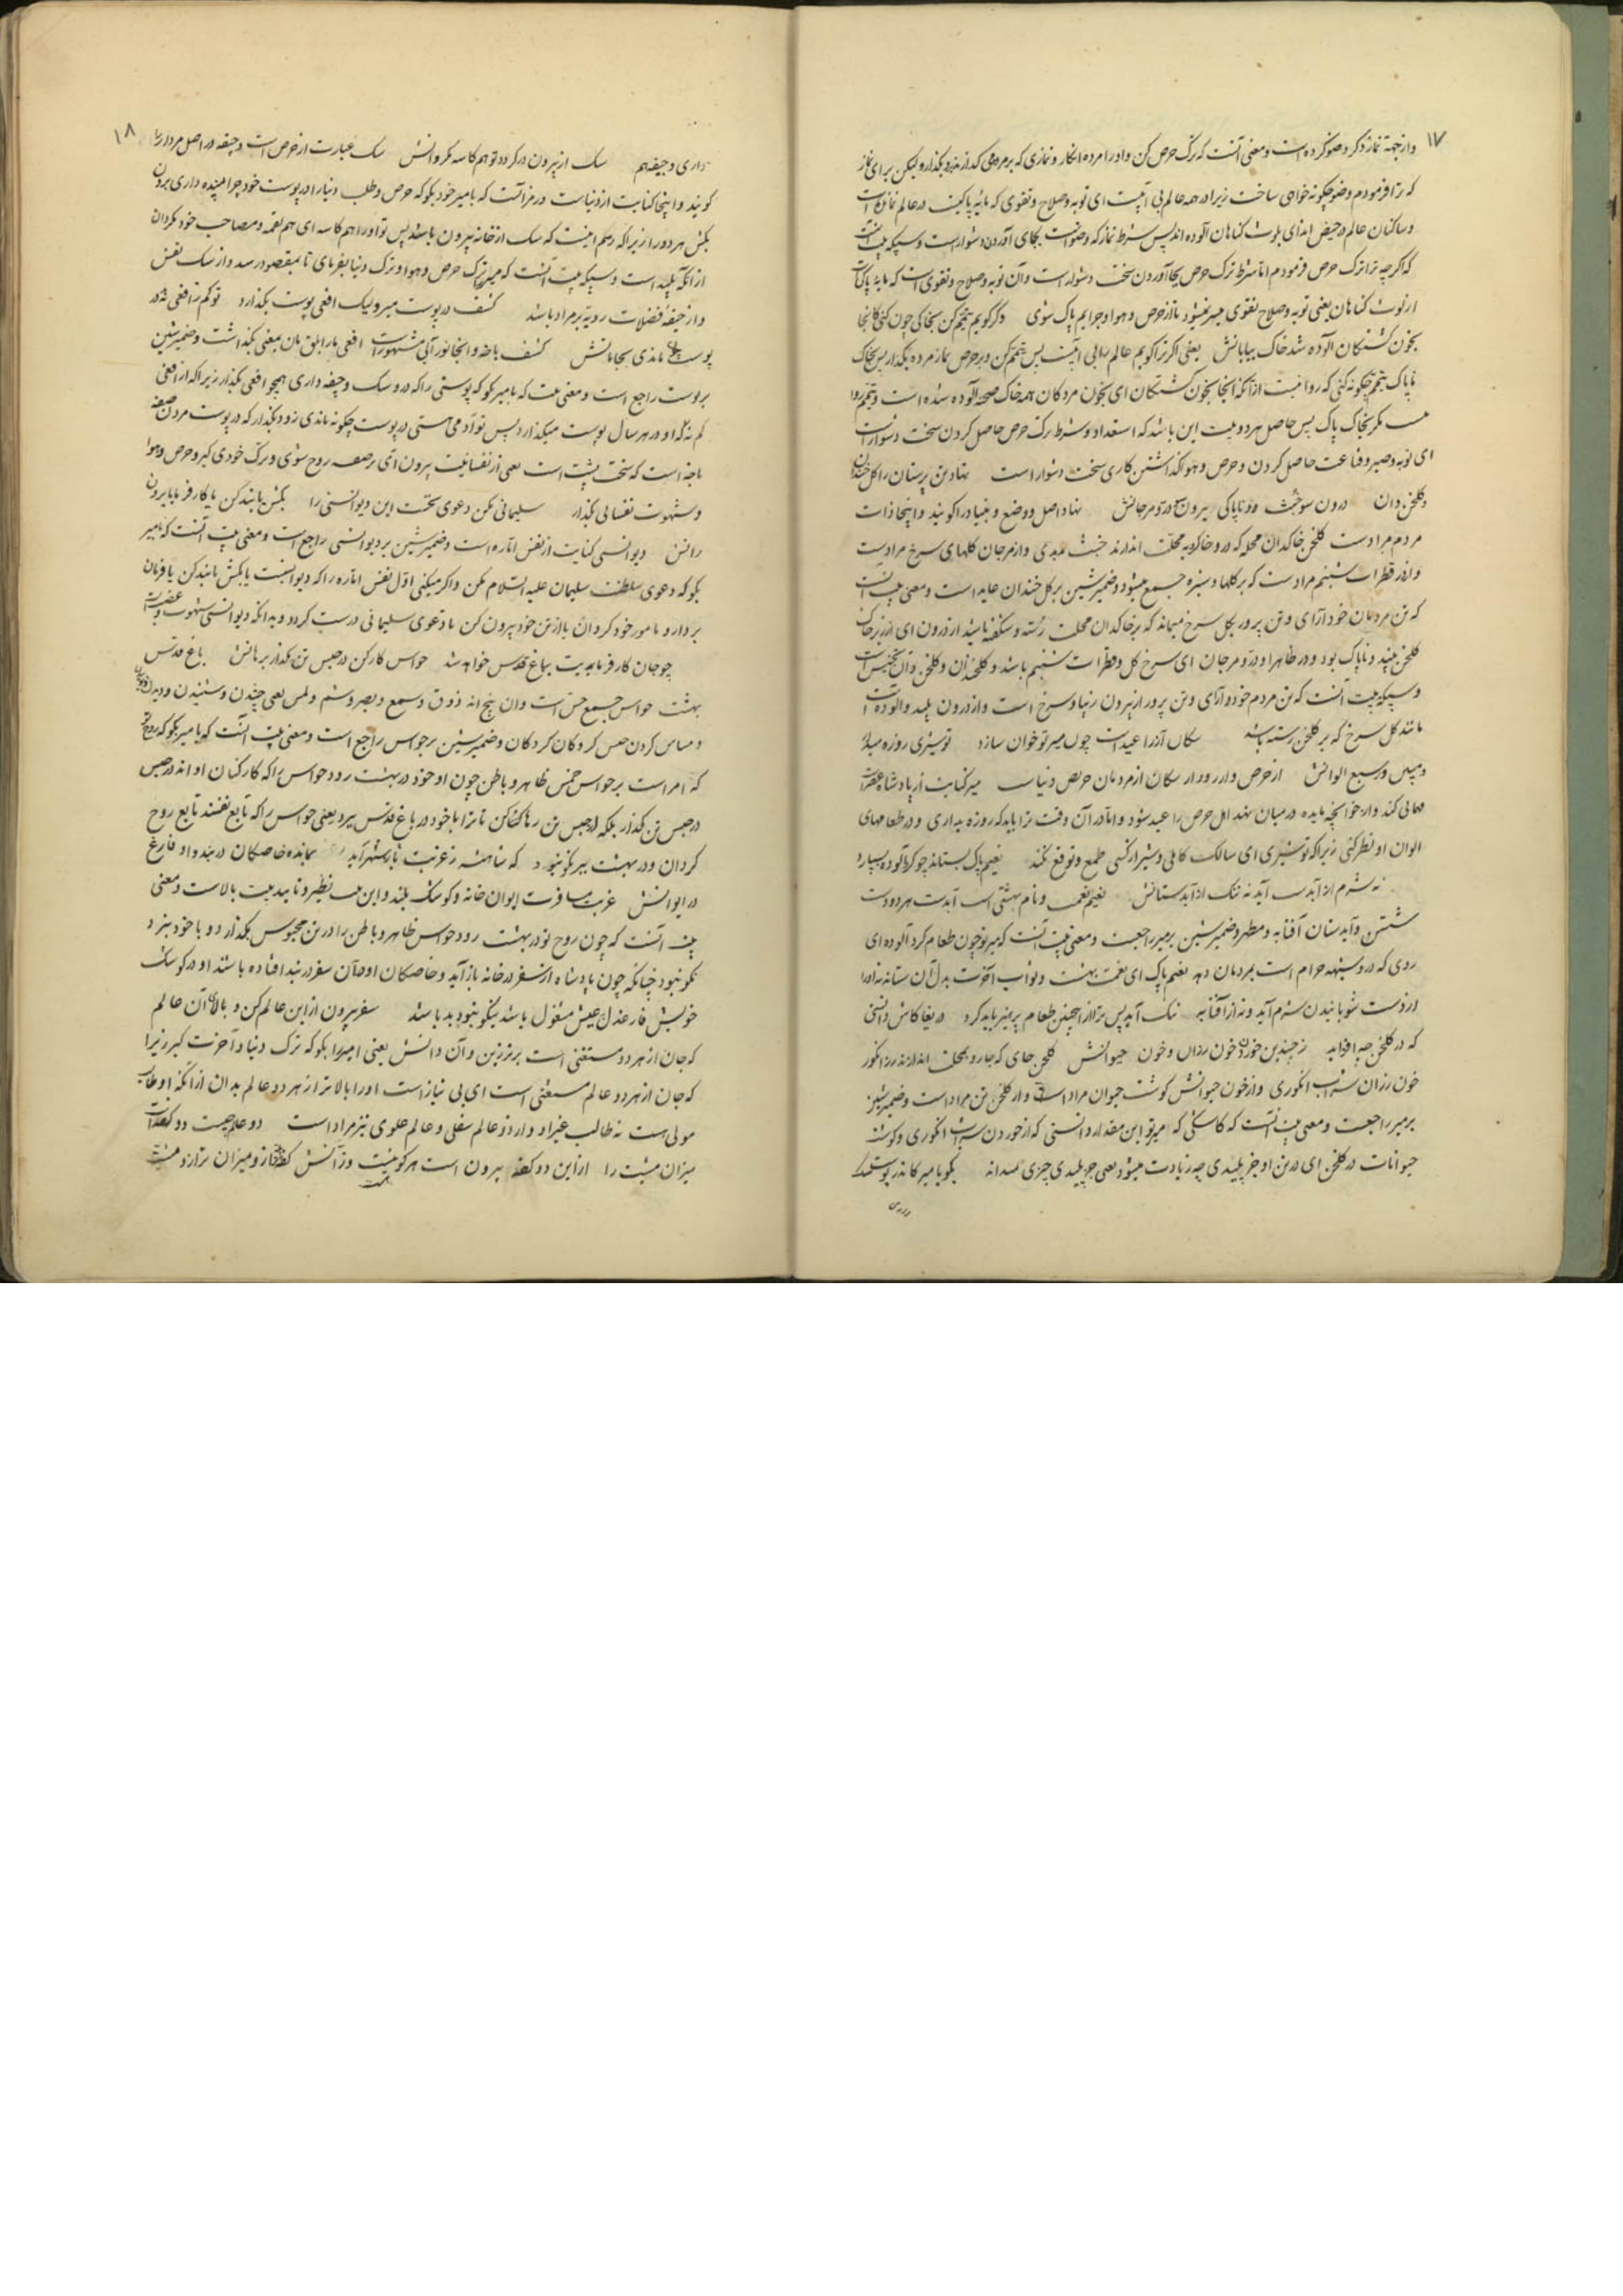 ۱۷
واز جهة نماز ذکر وضو کرده است ومعنی آنست که ترک حرص کن واورا مرده انکار ونمازی که بر مرده می کذارند بکذار ولیکن برای نماز
که ترا فرمودم وضو چکونه خواهی ساخت زیرا در همه عالم بی آبیست ای توبه وصلاح وتقوی که مایهٔ پاکیست در عالم نمانده است
وساکنان عالم در حیض اند ای بلوث کناهان آلوده اند پس شرط نماز که وضوست بجای آوردن دشوارست
که اکرچه ترا ترک حرص فرمودم اما شرط ترک حرص بجا آوردن سخت دشوار است وآن توبه وصلاح وتقوی است که مایهٔ پاکی است
از لوث کناهان یعنی توبه وصلاح تقوی میسر نمیشود تا از حرص وهوا وجرایم پاک شوی وکر کویم تیمم کن بخاکی چون کنی کانجا
بخون کشتکان آلوده شد خاک بیابانش یعنی اکر ترا کویم عالم را بی آبیست پس تیمم کن وبر حرص نماز مرده بکذار پس بخاک
ناپاک تیمم چکونه کنی که روا نیست از آنکه آنجا بخون کشتکان ای بخون مردکان همه خاک صحرا آلوده شده است وتیمم روا
نیست مکر بخاک پاک پس حاصل هر دو بیت این باشد که استعداد وشرط ترک حرص حاصل کردن سخت دشوار است
ای توبه وصبر وقناعت حاصل کردن وحرص وهوا کذاشتن کاری سخت دشوار است نهاد تن پرستان را کل خندان
وکلخن دان درون سو خبث وناپاکی بیرون سو در ومرجانش نهاد اصل ووضع وبنیاد را کویند واینجا ذات
مردم مراد است کلخن خاکدان محله که درو خاکروبه محلت اندازند خبث پلیدی واز مرجان کلهای سرخ مراد است
واز در قطرات شبنم مراد است که بر کلها وسبزه جمع میشود وضمیر شین بر کل خندان عاید است ومعنی بیت آنست
که تن مردمان خود آرای وتن پرور بکل سرخ میماند که بر خاکدان محلت رسته وشکفته باشد از درون ای از زیر خاک
کلخن پلید وناپاک بود ودر ظاهر او در ومرجان ای سرخ کل وقطرات شبنم باشد
که تن مردم خود آرای وتن پرور از بیرون زیبا وسرخ است واز درون پلید وآلوده است
مانند کل سرخ که بر کلخن رسته باشد سکان آزرا عیدست چون میر تو خوان سازد تو شیری روزه میدار
ومبین در سبع الوانش از حرص از سکان آز مردمان حریص دنیاست میر کنایت از پادشاه
مهمانی کند وار خوانچه مایده در میان نهد اهل حرص را عید شود واما در آن وقت ترا باید که روزه بداری ودر طعامهای
الوان او نظر کنی زیرا که تو شیری ای سالک کاملی وشیر از کسی طمع وتوقع نکند نعیم پاک بستاند چو کرد آلوده بسپارد
نه شرم از آبدست آید نه ننک از آبدستانش نعیم نعمت ونام بهشتی است آبدست هر دو دست
شستن وآبدستان آفتابه ومطهره وضمیر شین بر میر راجعست ومعنی بیت آنست که میر تو چون طعام کرد آلوده ای
ردی که درو شبهه حرام است بمردمان دهد نعیم پاک ای نعمت بهشت وثواب آخرت بدل آن ستاند نه او را
از دست شویانیدن شرم آید ونه از آفتابه ننک آید پس ترا از اینچنین طعام پرهیز باید کرد دریغا کاش دانستی
که در کلخن چه افزاید ز چندین خوردن خون رزان وخون حیوانش کلخن جای که جاروب محلت اندازند رز انکور
خون رزان شراب انکوری واز خون حیوانش کوشت حیوان مراد است واز کلخن تن مراد است وضمیر شین
بر میر راجعست ومعنی بیت آنست که کاشکی که امیر تو این مقدار دانستی که از خوردن شراب انکوری وکوشت
حیوانات در کلخن ای در تن او جز پلیدی چه زیادت میشود یعنی جز پلیدی چیزی نمیداند بکو با میر کاندر پوست سک
داری
۱۸
داری وجیفه هم سک از بیرون در کردد تو هم کاسه مکردانش سک عبارت از حرص است وجیفه در اصل مردار را
کویند واینجا کنایت از دنیاست ودر مرز آنست که با میر خود بکو که حرص وطلب دنیا را در پوست خود چرا میبنده داری بیرون
بکش هر دو را زیرا که رسم اینست که سک از خانه بیرون باشد پس تو او را هم کاسه ای هم لقمه ومصاحب خود مکردان
از آنکه پلید است بیت آنست که میر را ترک حرص وهوا وترک دنیا بفرمای تا بمقصود رسد واز سک نفس
واز جیفه فضلات ردیه مراد باشد کشف در پوست میرد لیک افعی پوست بکذارد تو کم ز افعی نهٔ در
پوست چون ماندی بجا مانش کشف باخه واینجا نور آبی مشهور است افعی مار ابلق مان بمعنی بکذاشت وضمیر شین
بر پوست راجع است ومعنی بیت که با میر بکو که پوستی را که درو سک وجیفه داری همچو افعی بکذار زیرا که از افعی
کم نهٔ که او در هر سال پوست میکذارد پس تو آدمی هستی در پوست چکونه ماندی زود بکذار که در پوست مردن صفت
باخه است که سخت پشت است یعنی از نفسانیت بیرون آی بر صفت روح شوی وترک خودی کبر وحرص وهوا
وشهوت نفسانی بکذار سلیمانی مکن دعوی نخست این دیو انسی را بکش یا بند کن یا کار فرما یا بیرون
رانش دیو انسی کنایت از نفس اماره است وضمیر شین بر دیو انسی راجع است ومعنی بیت آنست که با میر
بکو که دعوی سلطنت سلیمان علیه السلام مکن واکر میکنی اول نفس اماره را که دیو انسیست یا بکش یا بند کن یا فرمان
بردار ومامور خود کردان یا از تن خود بیرون کن تا دعوی سلیمانی درست کردد وبدانکه دیو انسی شهوت وغضب است
چو جان کار فرمایدت بباغ قدس خواهد شد حواس کارکن در حبس تن مکذار برهانش باغ قدس
بهشت حواس جمیع حس است وآن پنج اند ذوق وسمع وبصر وشم ولمس یعنی چشیدن وشنیدن ودیدن وبوییدن
ومساس کردن حس کردکان کردکان وضمیر شین بر حواس راجع است ومعنی بیت آنست که با میر بکو که روح تو
که امر است بر حواس خمس ظاهر وباطن چون او خود در بهشت رود حواس را که کارکنان او اند در حبس
در حبس تن مکذار بلکه از حبس تن رها کن تا ترا با خود در باغ قدس برد یعنی حواس را که تابع نفسند تابع روح
کردان ودر بهشت بیر نکو نبود که شاهنشه ز غربت باز شهر آید بمانده خاصکان در بند واو فارغ
در ایوانش غربت مسافرت ایوان خانه وکوشک بلند واین بیت نظیر وتایید بیت بالاست ومعنی
بیت آنست که چون روح تو در بهشت رود حواس ظاهر وباطن را در تن محبوس بکذارد وبا خود نبرد
نکو نبود چنانکه چون پادشاه از سفر در خانه باز آید وخاصکان او در آن سفر در بند افتاده باشند او در کوشک
خویش فارغدل بعیش مشغول باشد نیکو نبود بد باشد سفر بیرون از این عالم کن وبالای آن عالم
که جان از هر دو مستغنی است برتر زین وآن دانش یعنی امیر را بکو که ترک دنیا وآخرت کیر زیرا
که جان از هر دو عالم مستغنی است ای بی نیاز است او را بالاتر از هر دو عالم بدان از آنکه او طالب
مولی است نه طالب غیر او واز دو عالم سفلی وعالم علوی نیز مراد است دو عالم چیست دو کفه است
میزان مشیت را ازاین دو کفه بیرون است هر کو نیست وزانش کفه خاز ومیزان ترازو مشیت